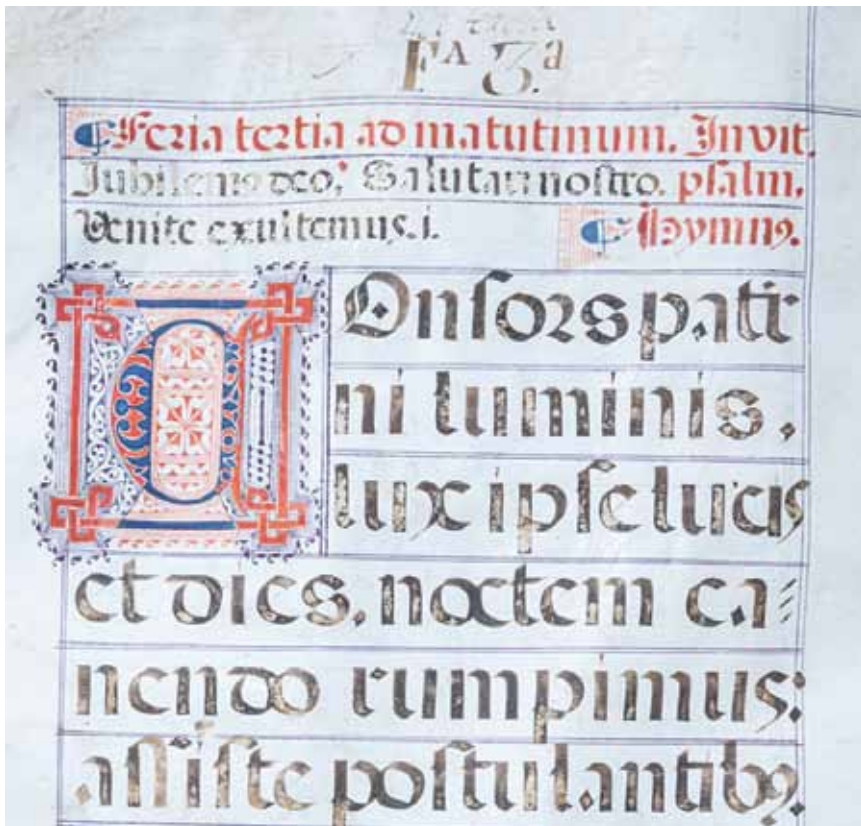 Fᴬ 3.ª
Feria tertia ad matutinum. Invit.
Jubilemus deo. Salutari nostro. psalm.
Venite exultemus. i. Hymnꝰ.
COnsors pater
ni luminis.
lux ipse lucis
et dies. noctem ca⸗
nendo rumpimus:
assiste postulantibꝰ.